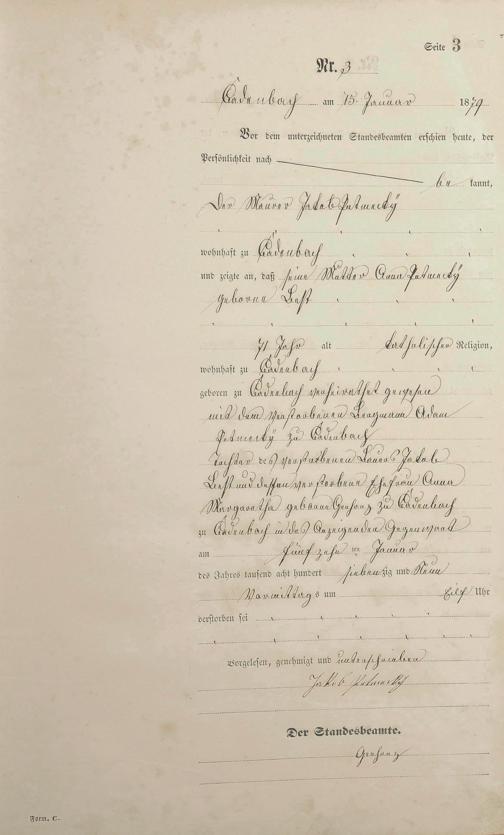 Seite 3
Nr. 3
Cadenbach am 15. Januar 1879
Vor dem unterzeichneten Standesbeamten erschien heute, der
Persönlichkeit nach
be kannt,
Der Maurer Jakob Petmecky
wohnhaft zu Cadenbach
und zeigte an, daß seine Mutter Anna Petmecky
geborne Best
71 Jahr alt katholischer Religion,
wohnhaft zu Cadenbach
geboren zu Cadenbach verheirathet gewesen
mit dem verstorbenen Bergmann Adam
Petmecky zu Cadenbach
Tochter des verstorbenen Jakob
Best und dessen verstorbene Ehefrau Anna
Margaretha geborene Gerharz zu Cadenbach
zu Cadenbach in des Anzeigenden Gegenwart
am fünfzehn ten Januar
des Jahres tausend acht hundert siebenzig und Neun
Vormittags um Eilf Uhr
verstorben sei
Vorgelesen, genehmigt und unterschrieben
Jakob Petmecky
Der Standesbeamte.
Gerharz
Form. C.